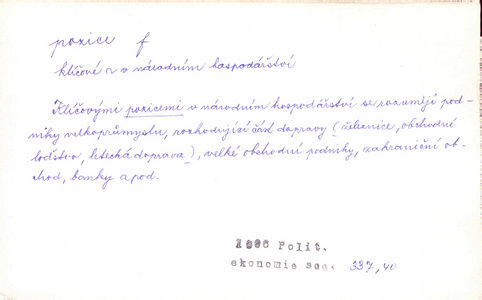 pozice f
klíčové ~ v národním hospodářství
Klíčovými pozicemi v národním hospodářství se rozumějí pod-
niky velkoprůmyslu, rozhodující část dopravy (železnice, obchodní
loďstvo, letecká doprava), velké obchodní podniky, zahraniční ob-
chod, banky a pod.
Polit.
ekonomie soc. 337,40